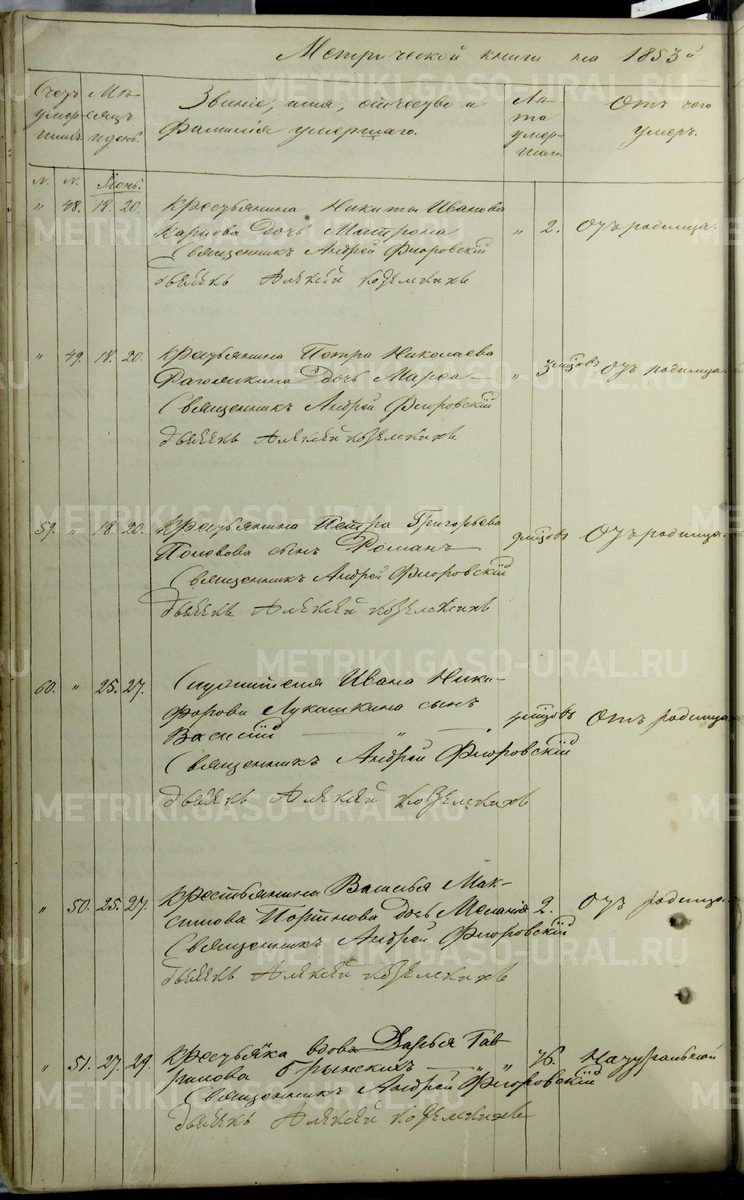 Метрической книги на 1853й
Счетъ умершихъ.
Мѣсяцъ и день.
Званіе, имя, отчество и фамилія умершаго.
Лѣта умершаго.
Отъ чего умеръ.
М. Ж. Іюнь.
" 48. 18. 20. Крестьянина Никиты Иванова " 2. Отъ родимца.
Карпова дочь Матрона
Священникъ Андрей Флоровскій
дьячекъ Алексѣй Козельскихъ
" 49. 18. 20. Крестьянина Петра Николаева " 3 мѣсцовъ Отъ родимца.
дочь Марѳа
Священникъ Андрей Флоровскій
дьячекъ Алексѣй Козельскихъ
59. " 18. 20. Крестьянина Петра Григорьева мѣсцовъ Отъ родимца.
Полевова сынъ Романъ
Священникъ Андрей Флоровскій
дьячекъ Алексѣй Козельскихъ
60. " 25. 27. Служителя Ивана Ники-
форова Лукашкина сынъ мѣсцовъ Отъ родимца.
Василій
Священникъ Андрей Флоровскій
дьячекъ Алексѣй Козельскихъ
" 50. 25. 27. Крестьянина Василья Мак-
симова дочь Меланія 2. Отъ родимца.
Священникъ Андрей Флоровскій
дьячекъ Алексѣй Козельскихъ
" 51. 27. 29. Крестьянка вдова Дарья Гав- 76. Натуральной
рилова Брынскихъ
Священникъ Андрей Флоровскій
дьячекъ Алексѣй Козельскихъ
METRIKI.GASO-URAL.RU